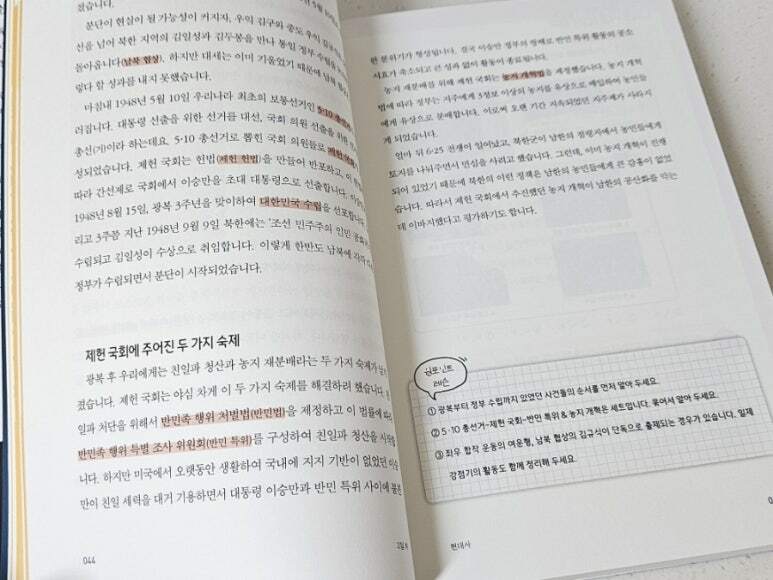 겼습니다.
분단이 현실이 될 가능성이 커지자, 우익 김구와 중도 우익 김규식
선을 넘어 북한 지역의 김일성과 김두봉을 만나 통일 정부 수립을
돌아옵니다(남북 협상). 하지만 대세는 이미 기울었기 때문에 남북
렇다 할 성과를 내지 못했습니다.
마침내 1948년 5월 10일 우리나라 최초의 보통선거인 5·10 총선거
러집니다. 대통령 선출을 위한 선거를 대선, 국회 의원 선출을 위한
총선(거)이라 하는데요. 5·10 총선거로 뽑힌 국회 의원들로 제헌 국회
성되었습니다. 제헌 국회는 헌법(제헌 헌법)을 만들어 반포하고, 이
따라 간선제로 국회에서 이승만을 초대 대통령으로 선출합니다.
1948년 8월 15일, 광복 3주년을 맞이하여 대한민국 수립을 선포합니다
리고 3주쯤 지난 1948년 9월 9일 북한에는 '조선 민주주의 인민 공화국
수립되고 김일성이 수상으로 취임합니다. 이렇게 한반도 남북에 각각
정부가 수립되면서 분단이 시작되었습니다.
제헌 국회에 주어진 두 가지 숙제
광복 후 우리에게는 친일파 청산과 농지 재분배라는 두 가지 숙제가
겼습니다. 제헌 국회는 야심 차게 이 두 가지 숙제를 해결하려 했습니다.
일파 처단을 위해서 반민족 행위 처벌법(반민법)을 제정하고 이 법률에 따라
반민족 행위 특별 조사 위원회(반민 특위)를 구성하여 친일파 청산을 시작
니다. 하지만 미국에서 오랫동안 생활하여 국내에 지지 기반이 없었던 이승
만이 친일 세력을 대거 기용하면서 대통령 이승만과 반민 특위 사이에 불편
044
한 분위기가 형성됩니다. 결국 이승만 정부의 방해로 반민 특위 활동의 공소
시효가 축소되고 큰 성과 없이 활동이 종료됩니다.
농지 재분배를 위해 제헌 국회는 농지 개혁법을 제정했습니다. 농지 개혁
법에 따라 정부는 지주에게 3정보 이상의 농지를 유상으로 매입하여 농민들
에게 유상으로 분배합니다. 이로써 오랜 기간 지속되었던 지주제가 사라지
게 되었습니다.
얼마 뒤 6·25 전쟁이 일어났고, 북한군이 남한의 점령지에서 농민들에게
토지를 나눠주면서 민심을 사려고 했습니다. 그런데, 이미 농지 개혁이 진행
되어 있었기 때문에 북한의 이런 정책은 남한의 농민들에게 큰 감흥이 없었
습니다. 따라서 제헌 국회에서 추진했던 농지 개혁이 남한의 공산화를 막는
데 이바지했다고 평가하기도 합니다.
원포인트
레슨
① 광복부터 정부 수립까지 있었던 사건들의 순서를 먼저 알아 두세요.
② 5·10 총선거-제헌 국회-반민 특위 & 농지 개혁은 세트입니다. 묶어서 알아 두세요.
③ 좌우 합작 운동의 여운형, 남북 협상의 김규식이 단독으로 출제되는 경우가 있습니다. 일제
강점기의 활동도 함께 정리해 두세요.
현대사